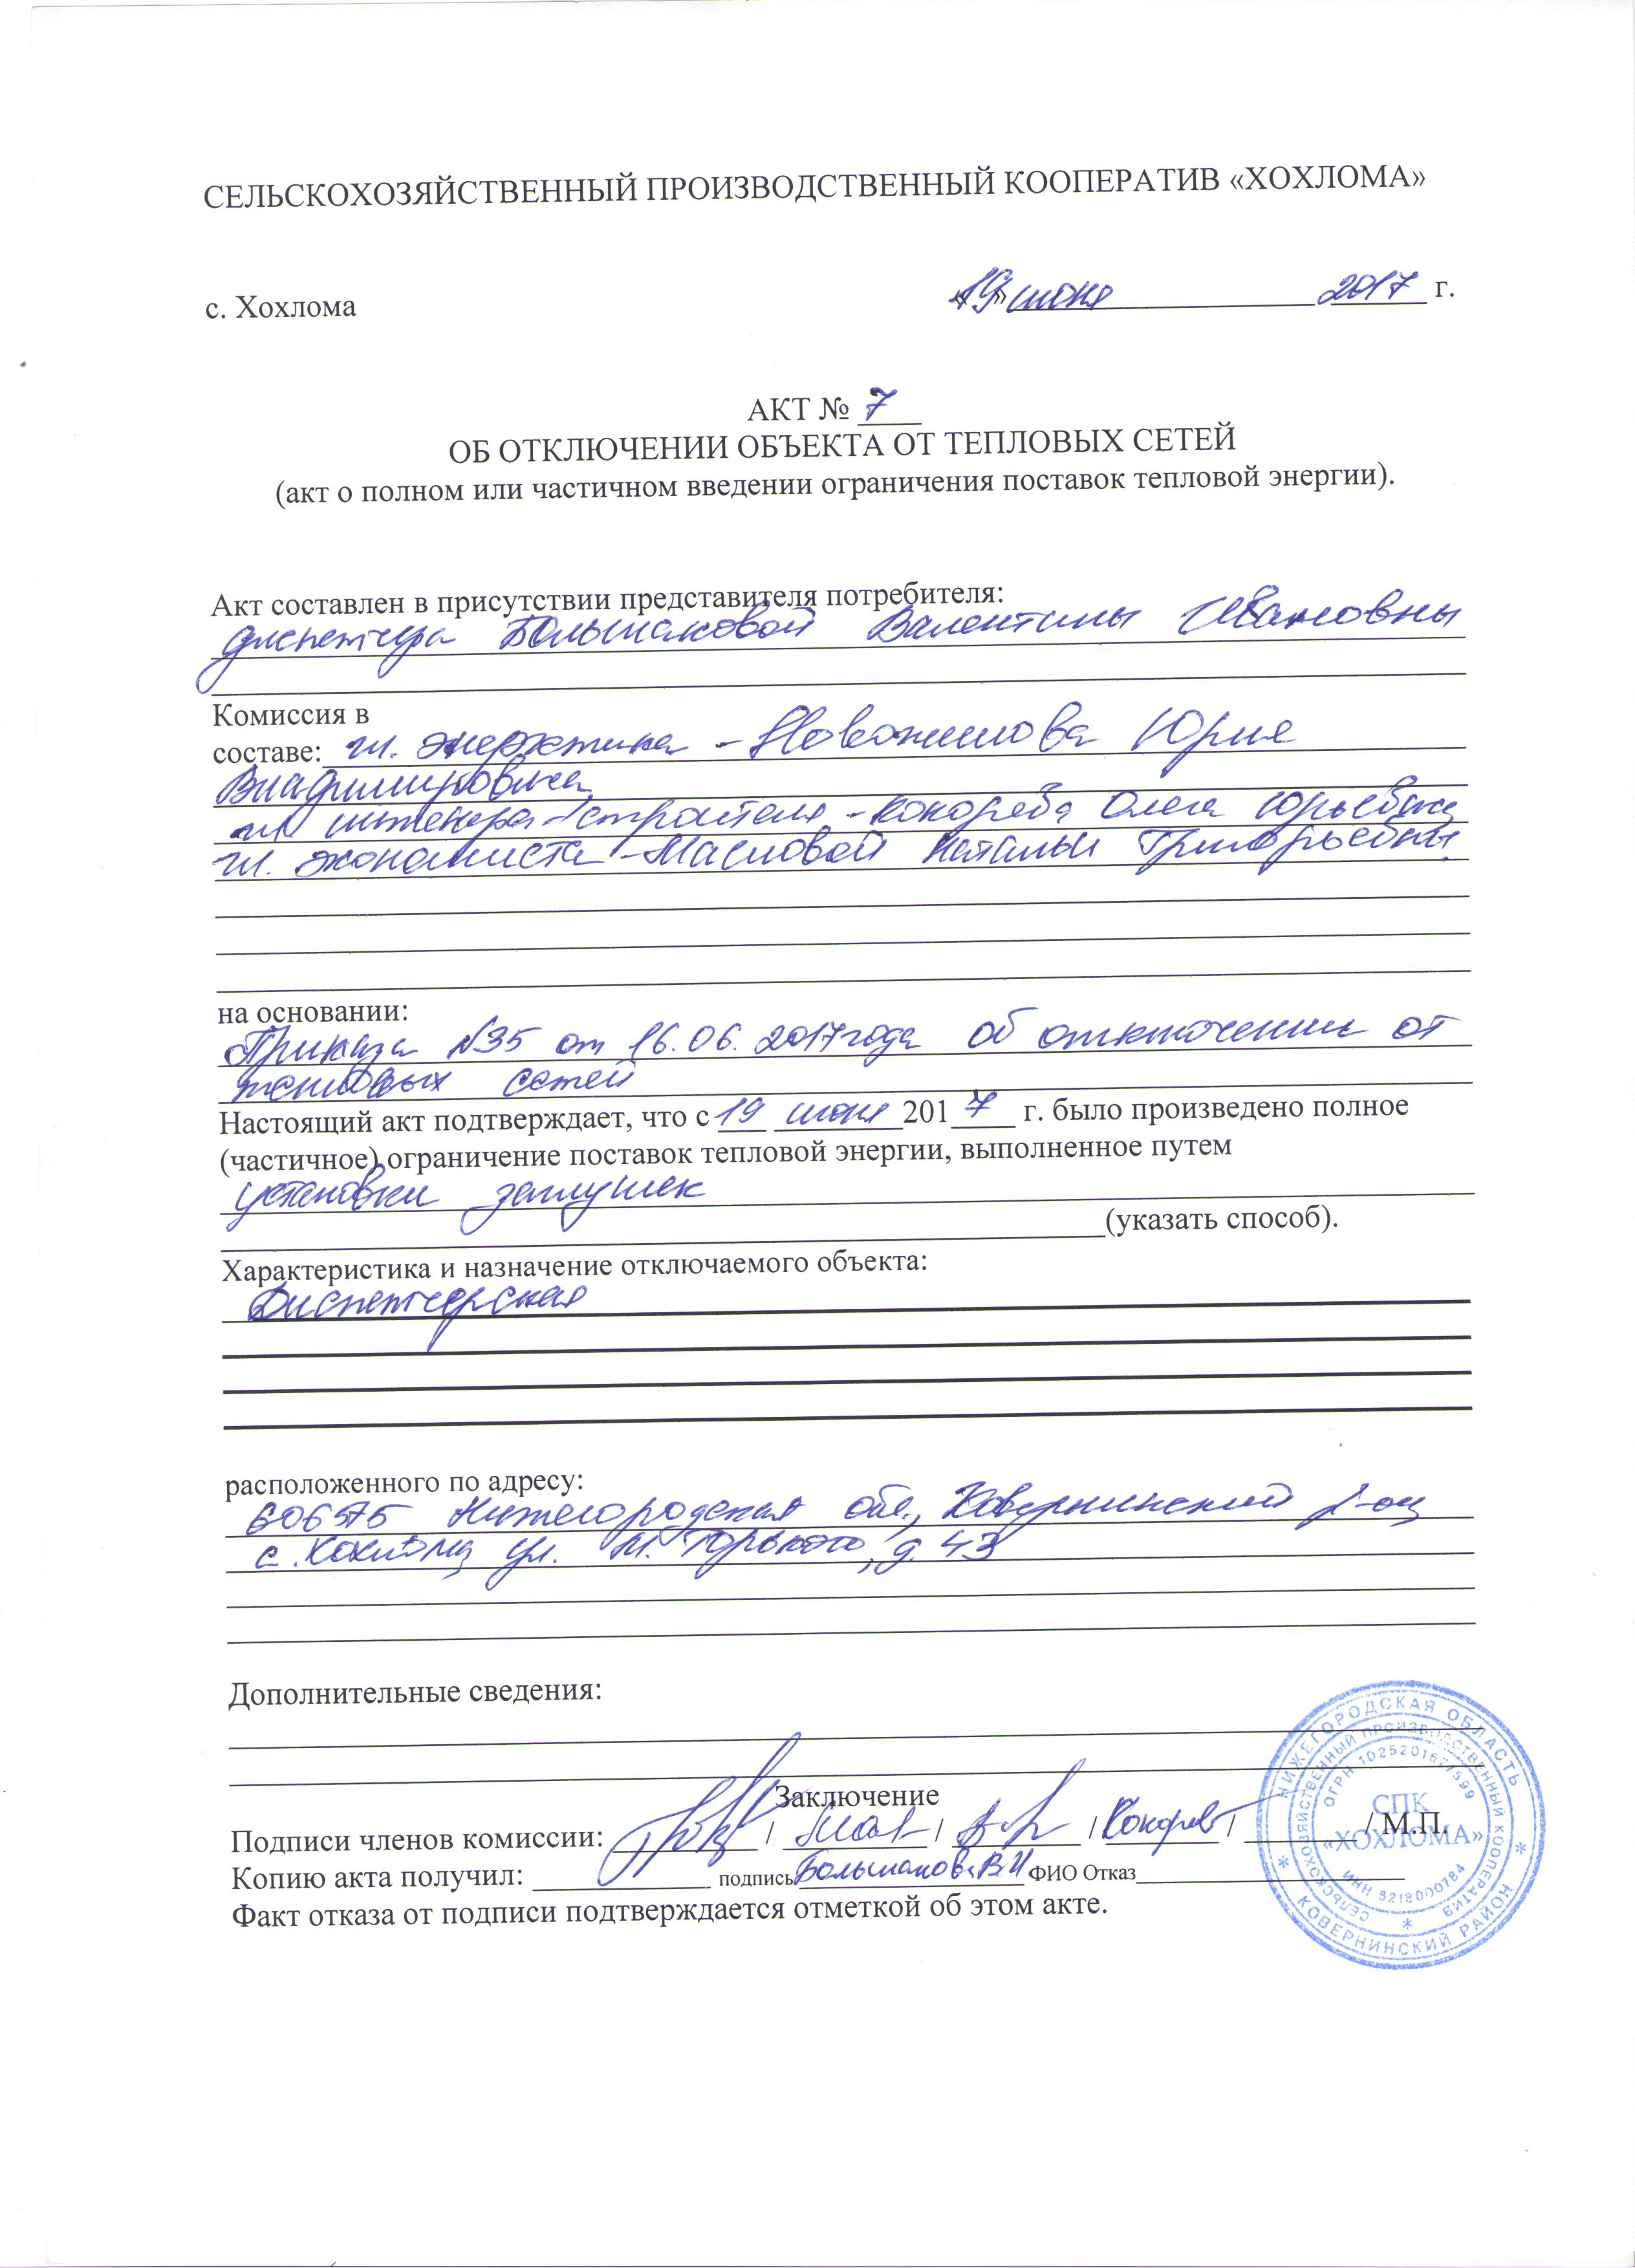 СЕЛЬСКОХОЗЯЙСТВЕННЫЙ ПРОИЗВОДСТВЕННЫЙ КООПЕРАТИВ «ХОХЛОМА»
с. Хохлома «19» июня 2017 г.
АКТ № 7
ОБ ОТКЛЮЧЕНИИ ОБЪЕКТА ОТ ТЕПЛОВЫХ СЕТЕЙ
(акт о полном или частичном введении ограничения поставок тепловой энергии).
Акт составлен в присутствии представителя потребителя:
диспетчера Большаковой Валентины Ивановны
Комиссия в
составе: гл. энергетика - Новожилова Юрия
Владимировича
гл инженера-строителя - Кокорева Олега Юрьевича
гл. экономиста - Масловой Натальи Григорьевны
на основании:
Приказа №35 от 16.06.2017 года об отключении от
тепловых сетей
Настоящий акт подтверждает, что с 19 июня 2017 г. было произведено полное
(частичное) ограничение поставок тепловой энергии, выполненное путем
установки заглушек
(указать способ).
Характеристика и назначение отключаемого объекта:
Диспетчерская
расположенного по адресу:
606575 Нижегородская обл., Ковернинский р-он
с. Хохлома ул. М. Горького, д. 43
Дополнительные сведения:
Заключение
Подписи членов комиссии: / / / Кокорев / / М.П.
Копию акта получил: подпись Большакова В И ФИО Отказ
Факт отказа от подписи подтверждается отметкой об этом акте.
НИЖЕГОРОДСКАЯ ОБЛАСТЬ
КОВЕРНИНСКИЙ РАЙОН
СЕЛЬСКОХОЗЯЙСТВЕННЫЙ ПРОИЗВОДСТВЕННЫЙ КООПЕРАТИВ
СПК
«ХОХЛОМА»